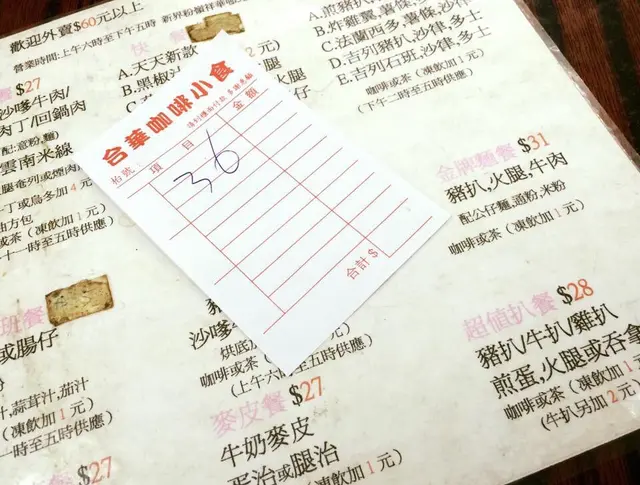 歡迎外賣$60元以上
營業時間:上午六時至下午五時
快
A.天天新款
B.黑椒
餐 $27
沙嗲牛肉/
肉丁/回鍋肉
配:意粉,麵)
雲南米線
丁或烏冬加 4 元
油方包
或茶(凍飲加1元)
十一時至五時供應)
A.煎豬扒,薯條,多士
B.炸雞翼,薯條,多士
C.法蘭西多,薯條,沙律
D.吉列豬扒,沙律,多士
E.吉列石班,沙律,多士
咖啡或茶(凍飲加1元)
(下午二時至五時供應)
合華咖啡小食
枱號
項目
金額
36
合計$
金牌麵餐 $31
豬扒,火腿,牛肉
配公仔麵,通粉,米粉
咖啡或茶(凍飲加1元)
超值扒餐 $28
豬扒/牛扒/雞扒
煎蛋,火腿或吞拿
咖啡或茶(凍飲加1元)
(牛扒另加2元
班餐
或腸仔
汁,蒜茸汁,茄汁
(凍飲加1元)
時至五時供應)
$27
沙嗲牛
烘底
咖啡或茶(凍飲加1元)
(上午六時
五時供應)
麥皮餐 $27
牛奶麥皮
蛋治或腿治
咖啡或茶(凍飲加1元)